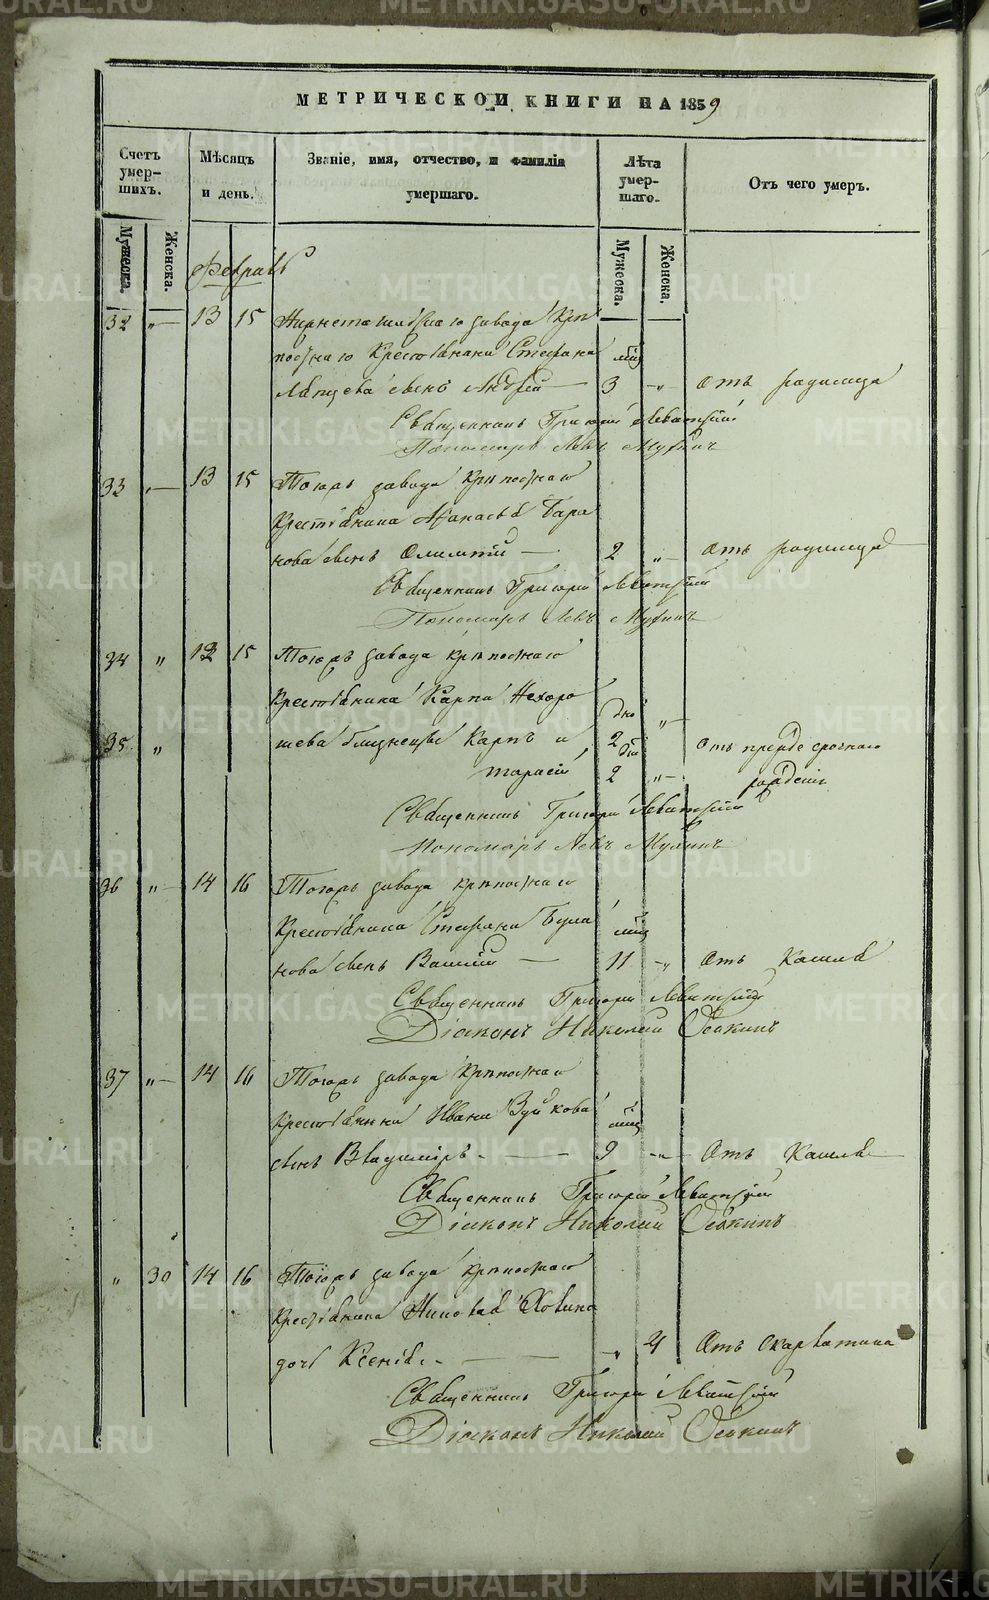 МЕТРИЧЕСКОЙ КНИГИ НА 1859
Счетъ умер-шихъ.
Мѣсяцъ и день.
Званіе, имя, отчество, и фамилія умершаго.
Лѣта умер-шаго.
Отъ чего умеръ.
Мужеска.
Женска.
Мужеска.
Женска.
Февраль
32 „ 13 15 завода Крѣ
постнаго Крестьянина Стефана мѣс
сынъ Андрей 3 „ Отъ родимца
Священникъ Григорій Левитскій
Пономарь Левъ Мухинъ
33 „ 13 15 Тогожъ завода Крѣпостнаго
Крестьянина Афанасья Бара
нова сынъ Олимпій 2 „ Отъ родимца
Священникъ Григорій Левитскій
Пономарь Левъ Мухинъ
34 „ 13 15 Тогожъ завода крѣпостнаго
Крестьянина Карпа Нехоро
35 „ шева близнецы Карпъ и 2 „ Отъ прежде срочнаго
Тарасій 2 „ рожденія
Священникъ Григорій Левитскій
Пономарь Левъ Мухинъ
36 „ 14 16 Тогожъ завода крѣпостнаго
Крестьянина Стефана Була мѣс
нова сынъ Василій 11 „ Отъ Кашля
Священникъ Григорій Левитскій
Діаконъ Николай Осокинъ
37 „ 14 16 Тогожъ завода Крѣпостнаго
Крестьянина Ивана Зуйкова мѣс
сынъ Владимиръ 9 „ Отъ Кашля
Священникъ Григорій Левитскій
Діаконъ Николай Осокинъ
„ 30 14 16 Тогожъ завода крѣпостнаго
Крестьянина
дочь Ксенія „ 4 Отъ скарлатина
Священникъ Григорій Левитскій
Діаконъ Николай Осокинъ
METRIKI.GASO-URAL.RU